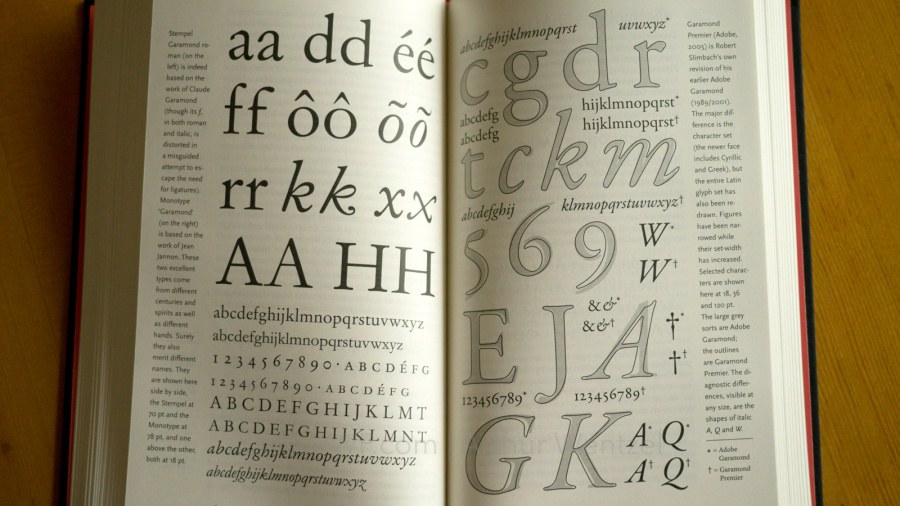 Stempel
Garamond ro-
man (on the
left) is indeed
based on the
work of Claude
Garamond
(though its f,
in both roman
and italic, is
distorted in
a misguided
attempt to es-
cape the need
for ligatures).
Monotype
'Garamond'
(on the right)
is based on the
work of Jean
Jannon. These
two excellent
types come
from different
centuries and
spirits as well
as different
hands. Surely
they also
merit different
names. They
are shown here
side by side,
the Stempel at
70 pt and the
Monotype at
78 pt, and one
above the other,
both at 18 pt.
aa dd éé
ff ôô õõ
rr kk xx
AA HH
abcdefghijklmnopqrstuvwxyz
abcdefghijklmnopqrstuvwxyz
1234567890·ABCDÉFG
1234567890·ABCDÉFG
ABCDEFGHIJKLMT
ABCDEFGHIJKLMNT
abcdefghijklmnopqrstuvwxyz
abcdefghijklmnopqrstuvwxyz
abcdefghijklmnopqrst uvwxyz*
c g d r
abcdefg hijklmnopqrst*
abcdefg hijklmnopqrst†
t c k m
abcdefghij klmnopqrstuvwxyz†
5 6 9 W*
W†
E J A &&* †*
&&† ‡†
123456789* 123456789†
G K A* Q*
A† Q†
Garamond
Premier (Adobe,
2005) is Robert
Slimbach's own
revision of his
earlier Adobe
Garamond
(1989/2001).
The major dif-
ference is the
character set
(the newer face
includes Cyrillic
and Greek), but
the entire Latin
glyph set has
also been re-
drawn. Figures
have been nar-
rowed while
their set-width
has increased.
Selected charac-
ters are shown
here at 18, 36
and 120 pt.
The large grey
sorts are Adobe
Garamond;
the outlines
are Garamond
Premier. The di-
agnostic differ-
ences, visible at
any size, are the
shapes of italic
A, Q and W.
* = Adobe
Garamond
† = Garamond
Premier